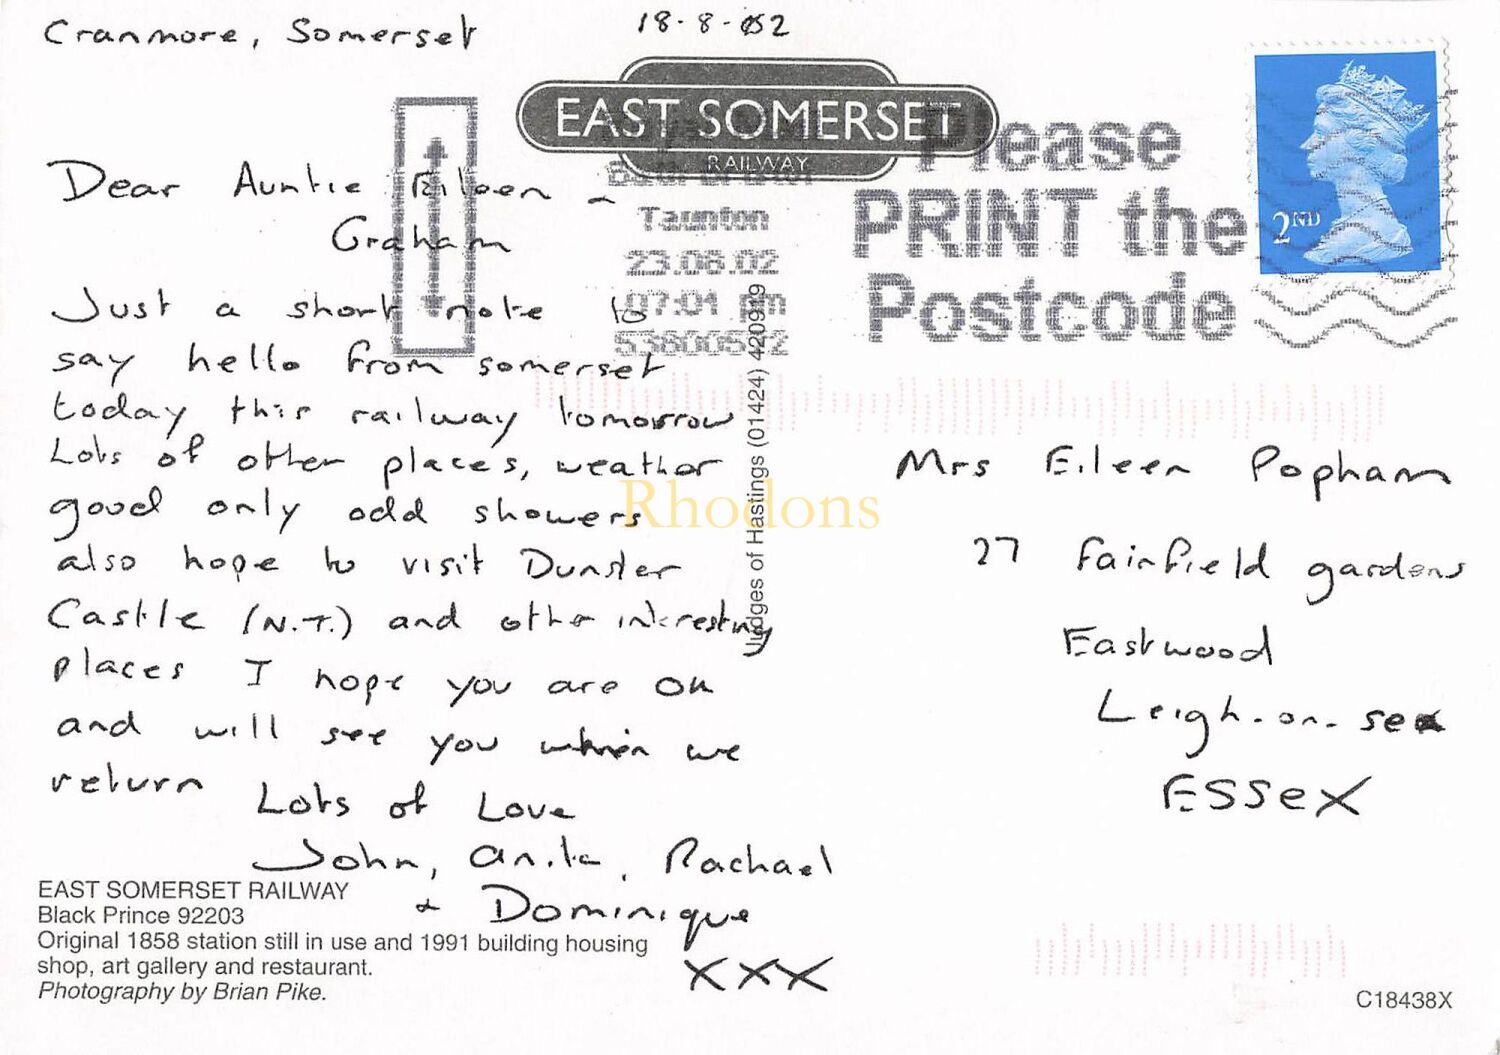 Cranmore, Somerset
18-8-02
EAST SOMERSET
RAILWAY
Please
PRINT the
Postcode
Taunton
23.08.02
07:01 pm
53800542
2ND
Dear Auntie Eileen ~
Graham
Just a short note to
say hello from somerset
today this railway tomorrow
Lots of other places, weather
good only odd showers
also hope to visit Dunster
Castle (N.T.) and other interesting
places I hope you are OK
and will see you when we
return
Lots of Love
John, Anita, Rachael
& Dominique
XXX
Mrs Eileen Popham
27 Fairfield gardens
Eastwood
Leigh-on-sea
ESSEX
Judges of Hastings (01424) 420919
Rhodons
EAST SOMERSET RAILWAY
Black Prince 92203
Original 1858 station still in use and 1991 building housing
shop, art gallery and restaurant.
Photography by Brian Pike.
C18438X